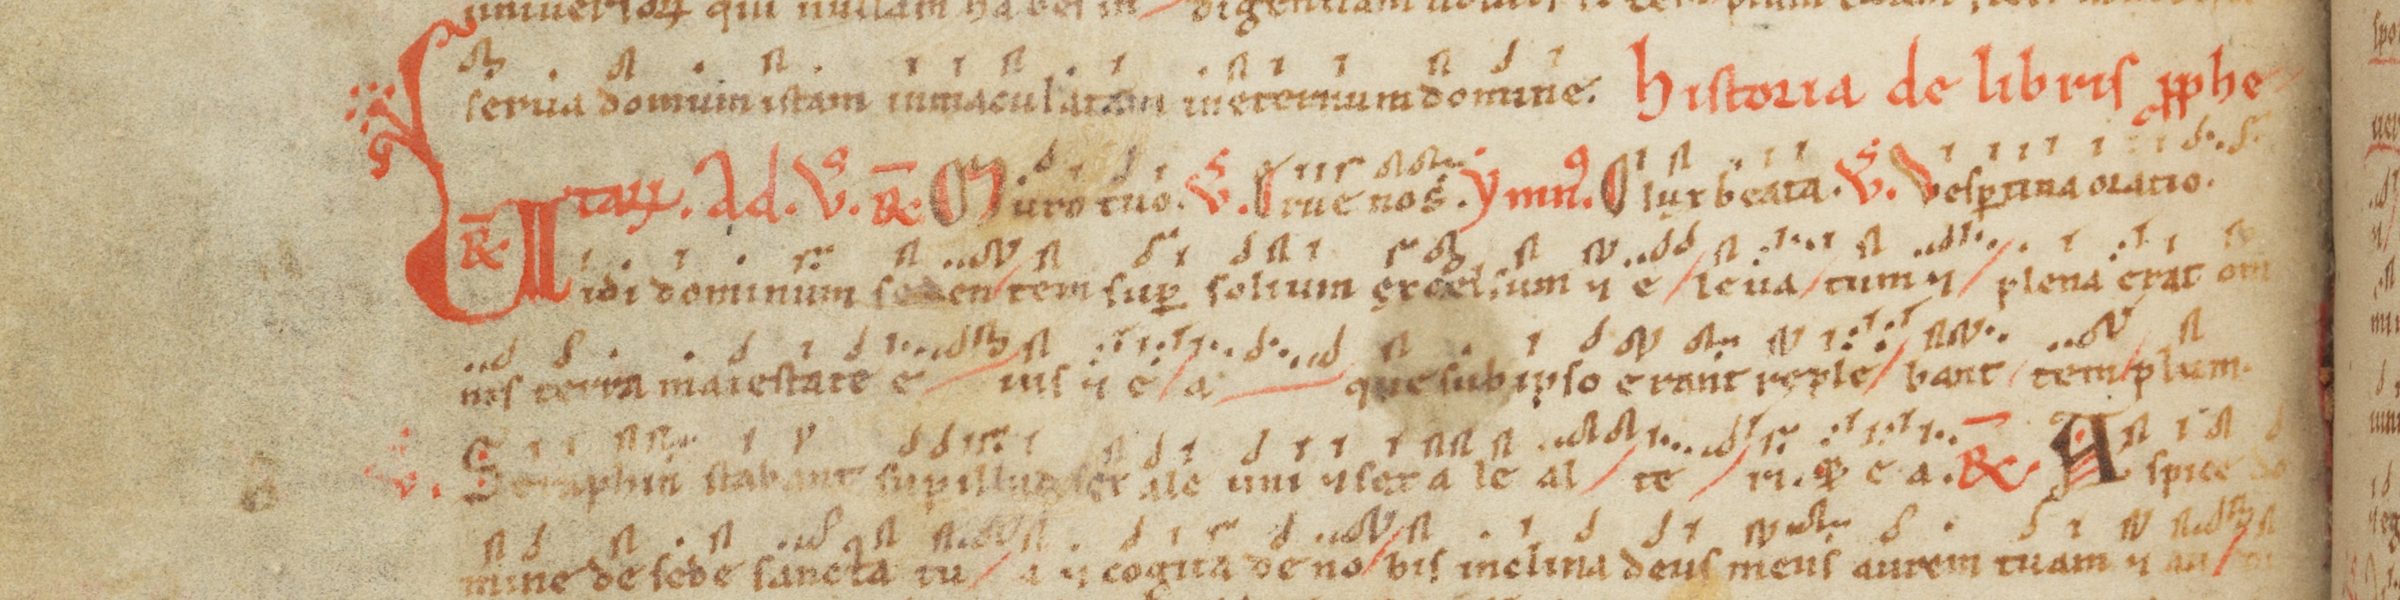 uniuersoꝝ qui nullam habes in digentiam
serua domum istam inmaculatam ineternum domine. historia de libris ꝓphe
taꝝ. Ad. V̄. R̄. Muro tuo. V̄. Erue nos. ymn᷒. O lux beata. V̄. Vesꝑtina oratio.
R̄ Uidi dominum seden tem suꝑ solium excelsum ⁊ e leua tum ⁊ plena erat om
nis terra maiestate e ius ⁊ e a que sub ipso erant reple bant tem plum.
V̄. Seraphin stabant sup illud ser ale uni ⁊ ser a le al te ri. ꝙ e a. R̄ Aspice do
mine de sede sancta tu a ⁊ cogita de no bis inclina deus meus aurem tuam ⁊ au di